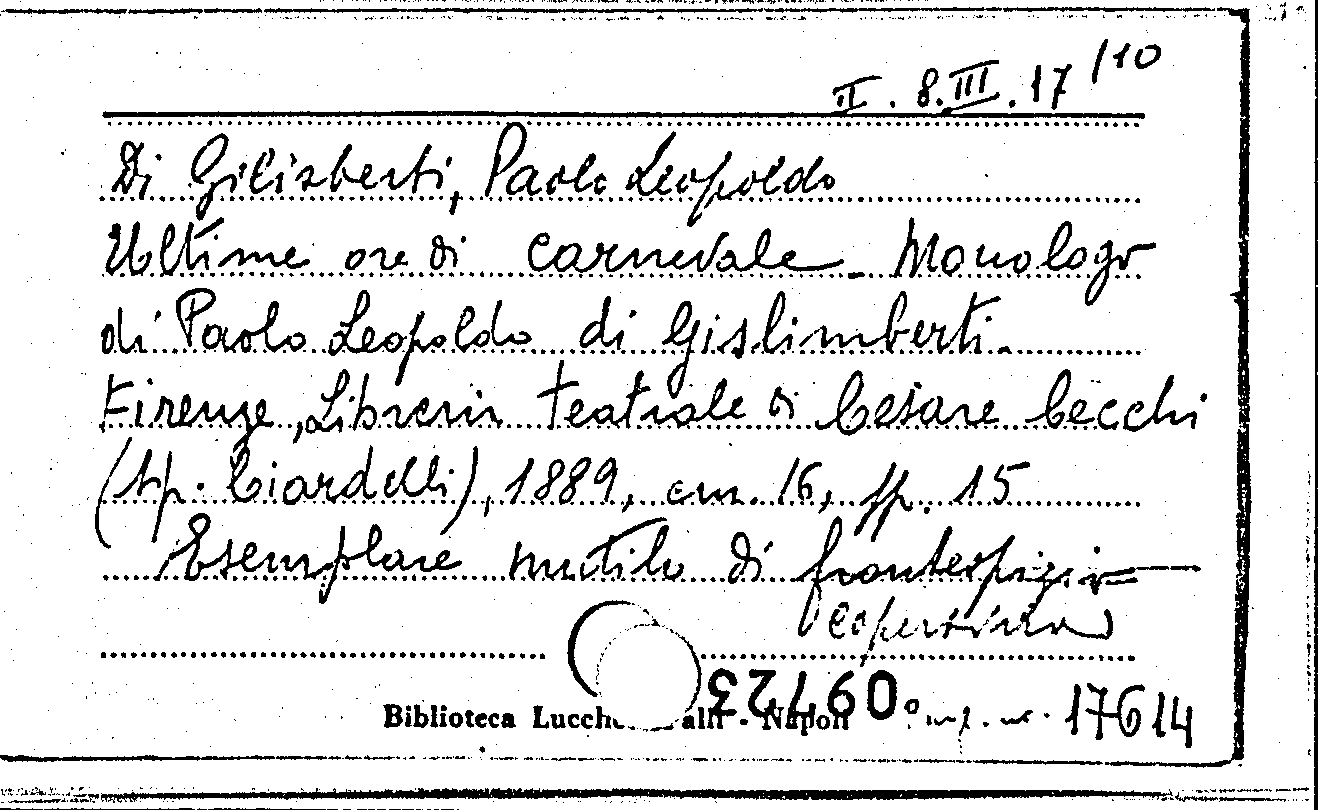 II. 8.III.17/10
Di Gilisberti, Paolo Leopoldo
Ultime ore di carnevale. Monologo
di Paolo Leopoldo di Gislimberti.
Firenze, Libreria teatrale di Cesare Cecchi
(tip. Ciardelli), 1889, cm. 16, pp. 15
Esemplare mutilo di frontespizio
(copertina)
Biblioteca Lucch alli - Napoli
097723
17614